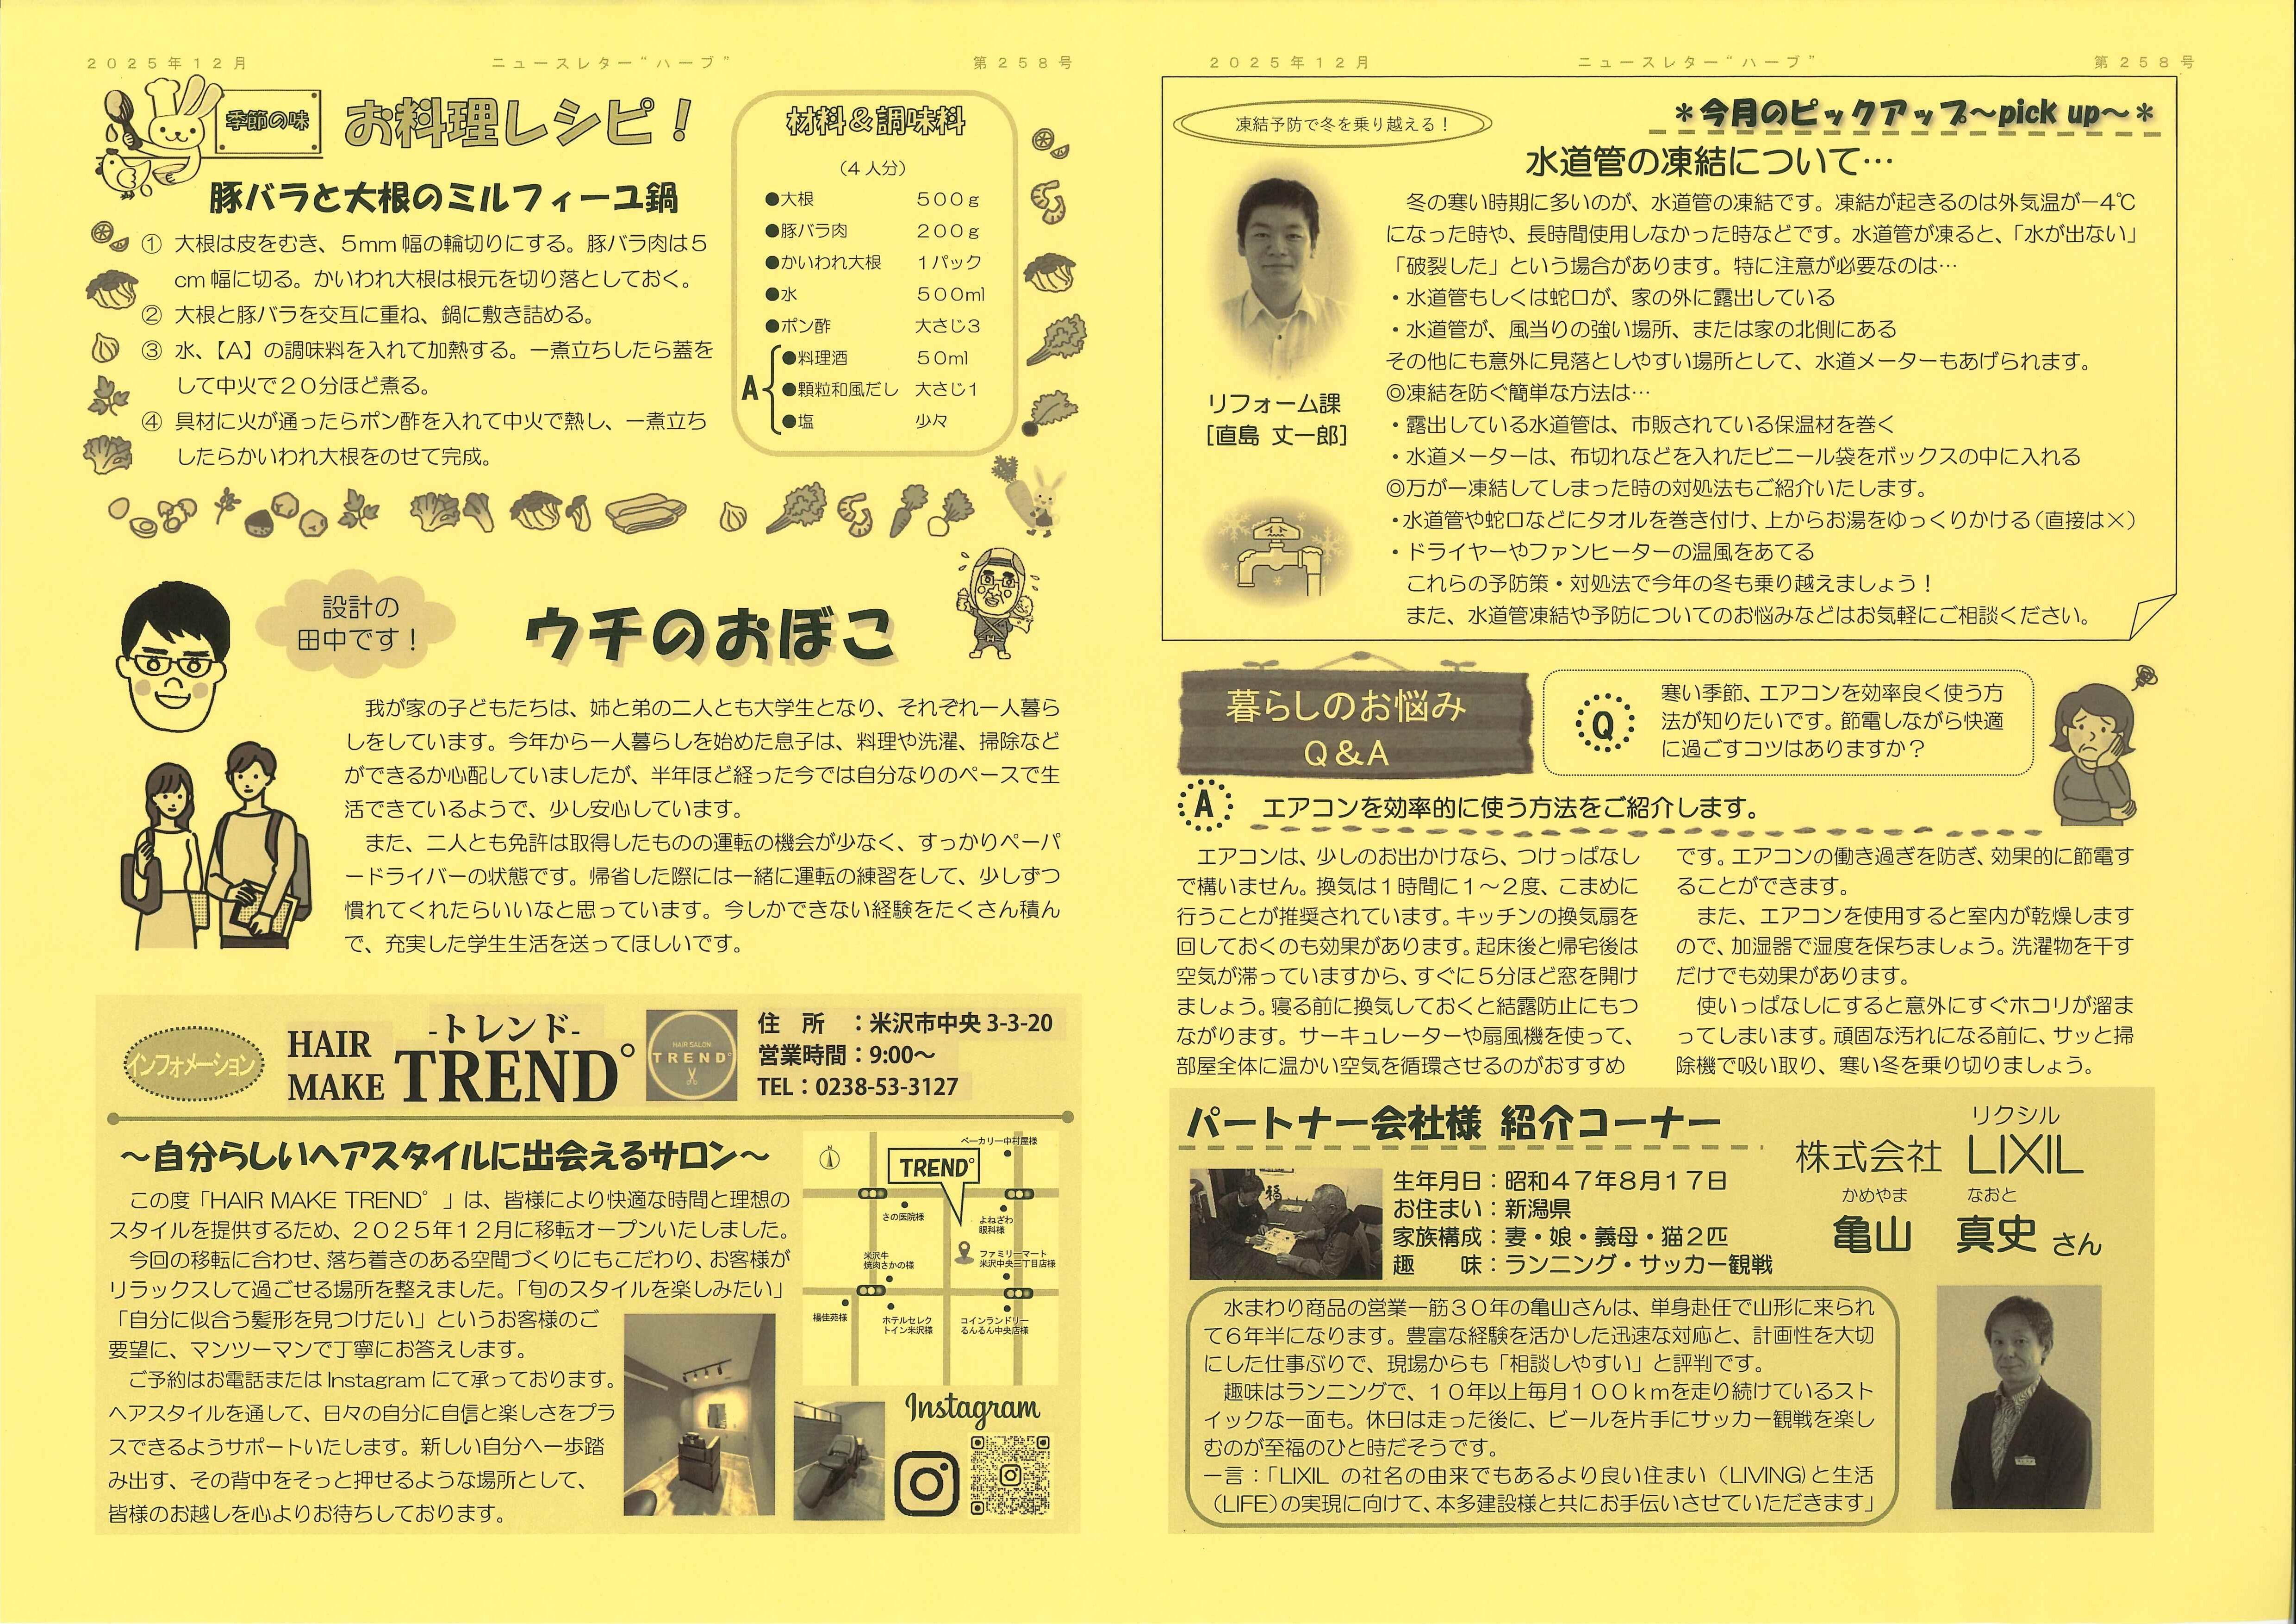 2025年12月
ニュースレター“ハーブ”
第258号
季節の味
お料理レシピ！
豚バラと大根のミルフィーユ鍋
① 大根は皮をむき、5mm幅の輪切りにする。豚バラ肉は5
cm幅に切る。かいわれ大根は根元を切り落としておく。
② 大根と豚バラを交互に重ね、鍋に敷き詰める。
③ 水、【A】の調味料を入れて加熱する。一煮立ちしたら蓋を
して中火で20分ほど煮る。
④ 具材に火が通ったらポン酢を入れて中火で熱し、一煮立ち
したらかいわれ大根をのせて完成。
材料＆調味料
（4人分）
●大根 500g
●豚バラ肉 200g
●かいわれ大根 1パック
●水 500ml
●ポン酢 大さじ3
A
●料理酒 50ml
●顆粒和風だし 大さじ1
●塩 少々
設計の
田中です！
ウチのおぼこ
我が家の子どもたちは、姉と弟の二人とも大学生となり、それぞれ一人暮ら
しをしています。今年から一人暮らしを始めた息子は、料理や洗濯、掃除など
ができるか心配していましたが、半年ほど経った今では自分なりのペースで生
活できているようで、少し安心しています。
また、二人とも免許は取得したものの運転の機会が少なく、すっかりペーパ
ードライバーの状態です。帰省した際には一緒に運転の練習をして、少しずつ
慣れてくれたらいいなと思っています。今しかできない経験をたくさん積ん
で、充実した学生生活を送ってほしいです。
インフォメーション
HAIR
MAKE
-トレンド-
TREND°
HAIR SALON
TREND°
住　所　：米沢市中央 3-3-20
営業時間：9:00～
TEL：0238-53-3127
～自分らしいヘアスタイルに出会えるサロン～
この度「HAIR MAKE TREND°」は、皆様により快適な時間と理想の
スタイルを提供するため、2025年12月に移転オープンいたしました。
今回の移転に合わせ、落ち着きのある空間づくりにもこだわり、お客様が
リラックスして過ごせる場所を整えました。「旬のスタイルを楽しみたい」
「自分に似合う髪形を見つけたい」というお客様のご
要望に、マンツーマンで丁寧にお答えします。
ご予約はお電話またはInstagramにて承っております。
ヘアスタイルを通して、日々の自分に自信と楽しさをプラ
スできるようサポートいたします。新しい自分へ一歩踏
み出す、その背中をそっと押せるような場所として、
皆様のお越しを心よりお待ちしております。
N
ベーカリー中村屋様
TREND°
さの医院様
よねざわ
眼科様
米沢牛
焼肉さかの様
ファミリーマート
米沢中央三丁目店様
楊佳苑様
ホテルセレク
トイン米沢様
コインランドリー
るんるん中央店様
Instagram
2025年12月
ニュースレター“ハーブ”
第258号
凍結予防で冬を乗り越える！
＊今月のピックアップ～pick up～＊
水道管の凍結について…
冬の寒い時期に多いのが、水道管の凍結です。凍結が起きるのは外気温が－4℃
になった時や、長時間使用しなかった時などです。水道管が凍ると、「水が出ない」
「破裂した」という場合があります。特に注意が必要なのは…
・水道管もしくは蛇口が、家の外に露出している
・水道管が、風当りの強い場所、または家の北側にある
その他にも意外に見落としやすい場所として、水道メーターもあげられます。
◎凍結を防ぐ簡単な方法は…
・露出している水道管は、市販されている保温材を巻く
・水道メーターは、布切れなどを入れたビニール袋をボックスの中に入れる
◎万が一凍結してしまった時の対処法もご紹介いたします。
・水道管や蛇口などにタオルを巻き付け、上からお湯をゆっくりかける（直接は×）
・ドライヤーやファンヒーターの温風をあてる
これらの予防策・対処法で今年の冬も乗り越えましょう！
また、水道管凍結や予防についてのお悩みなどはお気軽にご相談ください。
リフォーム課
［直島 丈一郎］
暮らしのお悩み
Q＆A
Q
寒い季節、エアコンを効率良く使う方
法が知りたいです。節電しながら快適
に過ごすコツはありますか？
A
エアコンを効率的に使う方法をご紹介します。
エアコンは、少しのお出かけなら、つけっぱなし
で構いません。換気は1時間に1～2度、こまめに
行うことが推奨されています。キッチンの換気扇を
回しておくのも効果があります。起床後と帰宅後は
空気が滞っていますから、すぐに5分ほど窓を開け
ましょう。寝る前に換気しておくと結露防止にもつ
ながります。サーキュレーターや扇風機を使って、
部屋全体に温かい空気を循環させるのがおすすめ
です。エアコンの働き過ぎを防ぎ、効果的に節電す
ることができます。
また、エアコンを使用すると室内が乾燥します
ので、加湿器で湿度を保ちましょう。洗濯物を干す
だけでも効果があります。
使いっぱなしにすると意外にすぐホコリが溜ま
ってしまいます。頑固な汚れになる前に、サッと掃
除機で吸い取り、寒い冬を乗り切りましょう。
パートナー会社様 紹介コーナー
リクシル
株式会社 LIXIL
かめやま　なおと
亀山　真史 さん
福
生年月日：昭和47年8月17日
お住まい：新潟県
家族構成：妻・娘・義母・猫2匹
趣　　味：ランニング・サッカー観戦
水まわり商品の営業一筋30年の亀山さんは、単身赴任で山形に来られ
て6年半になります。豊富な経験を活かした迅速な対応と、計画性を大切
にした仕事ぶりで、現場からも「相談しやすい」と評判です。
趣味はランニングで、10年以上毎月100kmを走り続けているスト
イックな一面も。休日は走った後に、ビールを片手にサッカー観戦を楽し
むのが至福のひと時だそうです。
一言：「LIXIL の社名の由来でもあるより良い住まい（LIVING)と生活
（LIFE)の実現に向けて、本多建設様と共にお手伝いさせていただきます」